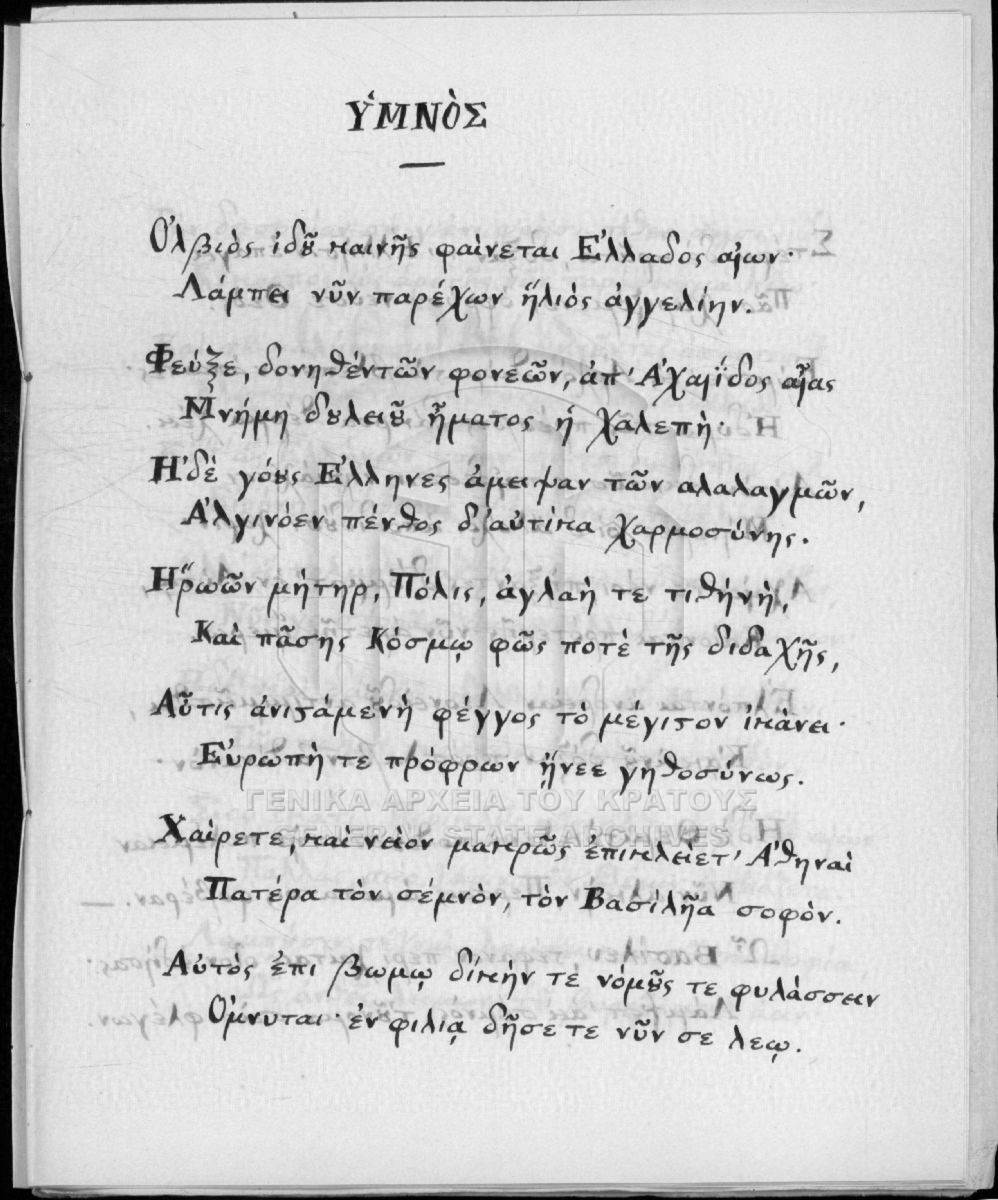 ΥΜΝῸΣ
Ὄλβιὸς ἰδȣ͂ καινῆς φαίνεται Ἑλλαδος αἰων·
Λάμπει νῦν παρέχων ἥλιὸς ἀγγελίην.
Φεύξε, δονηθέντῶν φονεῶν, ἀπ' Ἀχαιΐδος αἶας
Μνήμη δȣλειȣ͂ ἦματος ἡ χαλεπὴ·
Ἠδέ γόȣς Ἕλληνες ἀμειψαν τῶν αλαλαγμῶν,
Ἀλγινόεν πένθος δ' αὐτίκα χαρμοσύνης.
Ἡρωῶν μήτηρ, Πόλις, ἀγλαὴ τε τιθήνή,
Καὶ πᾶσης Κόσμῳ φῶς ποτέ τῆς διδαχῆς,
Αὖτις ἀνιϛάμενὴ φέγγος τὸ μέγιϛον ἱκάνει·
Εὐρωπὴ τε πρόφρων ᾔνεε γηθοσύνως.
Χαίρετε, καὶ νεὶον μακρῶς ἐπικλείετ' Ἀθηναὶ
Πατέρα τὸν σέμνὸν, τὸν Βασιλῆα σοφὸν.
Αὐτὸς ἐπι βωμῳ δίκὴν τὲ νόμȣς τε φυλάσσειν
Ὀμνυται· ἐν φιλιᾳ δῆσε τε νῦν σε λεῳ.
ΓΕΝΙΚΑ ΑΡΧΕΙΑ ΤΟΥ ΚΡΑΤΟΥΣ
GENERAL STATE ARCHIVES